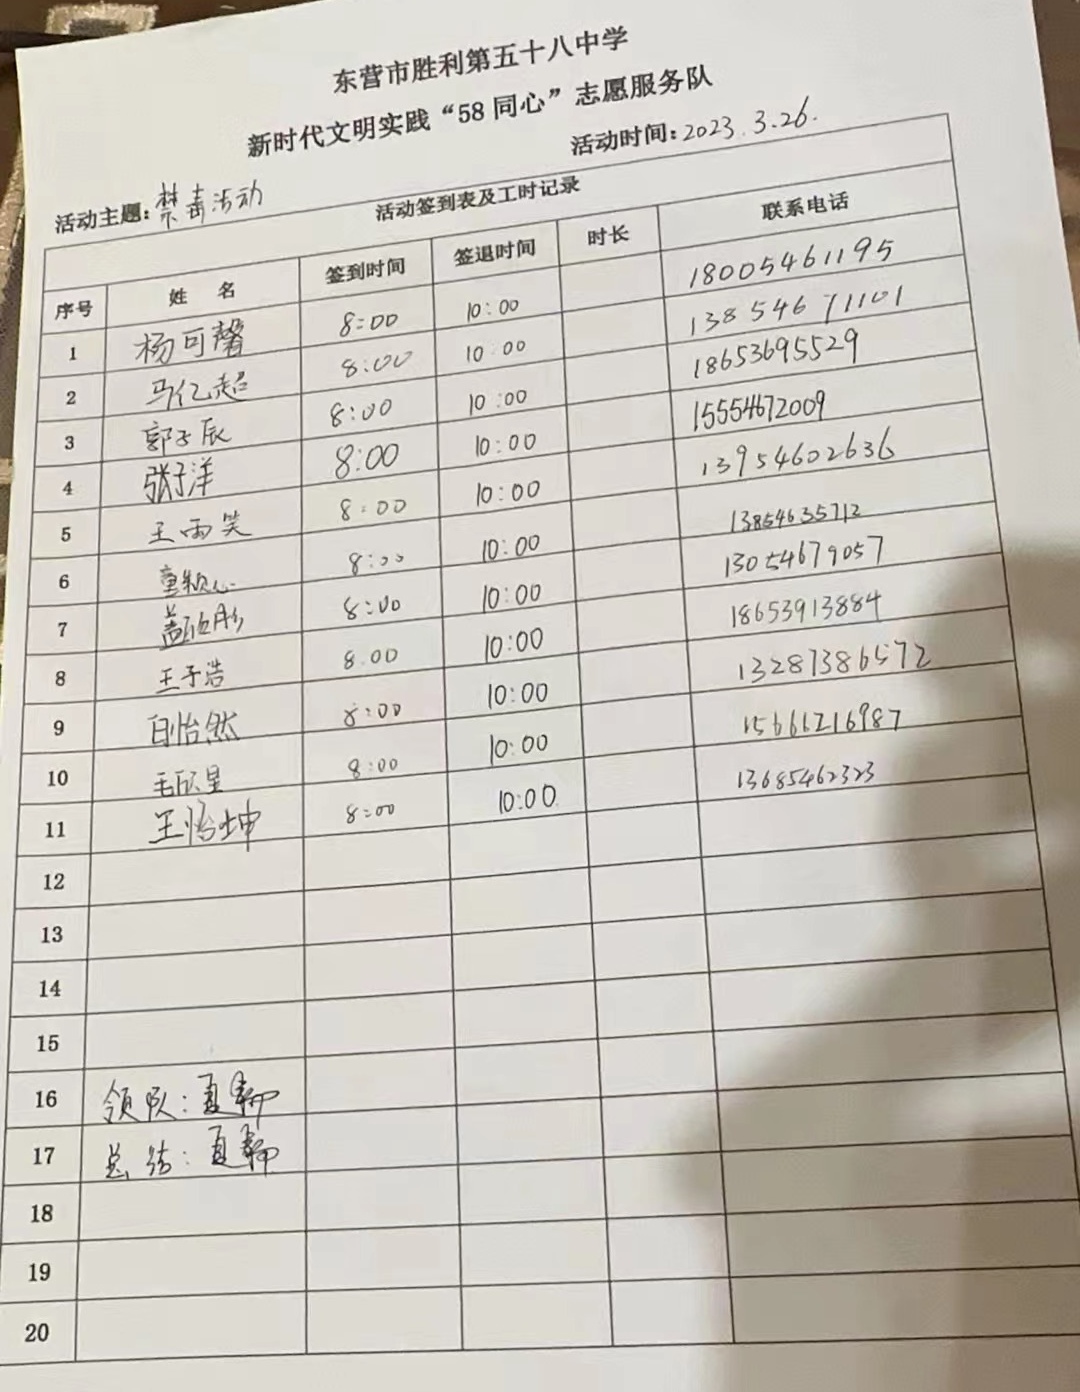 东营市胜利第五十八中学
新时代文明实践“58同心”志愿服务队
活动主题：禁毒活动 活动时间：2023.3.26.
活动签到表及工时记录
序号 姓 名 签到时间 签退时间 时长 联系电话
1 杨可馨 8:00 10:00 18005461195
2 马亿超 8:00 10:00 13854671101
3 郭子辰 8:00 10:00 18653695529
4 张子洋 8:00 10:00 15554672009
5 王雨笑 8:00 10:00 13954602636
6 童颖心 8:00 10:00 13854635712
7 盖欣彤 8:00 10:00 13054679057
8 王子浩 8:00 10:00 18653913884
9 白怡然 8:00 10:00 13287386572
10 毛欣星 8:00 10:00 15661216987
11 王怡坤 8:00 10:00 13685462323
12
13
14
15
16 领队：
17 总结：
18
19
20